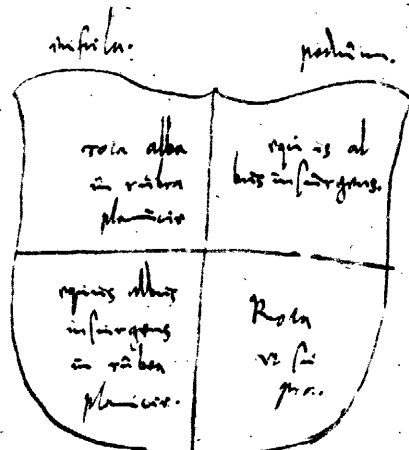 rota alba
in rubra
planicie
equus al
bus insurgens.
equus albus
insurgens
in rubra
planicie.
Rota
vt su
pra.